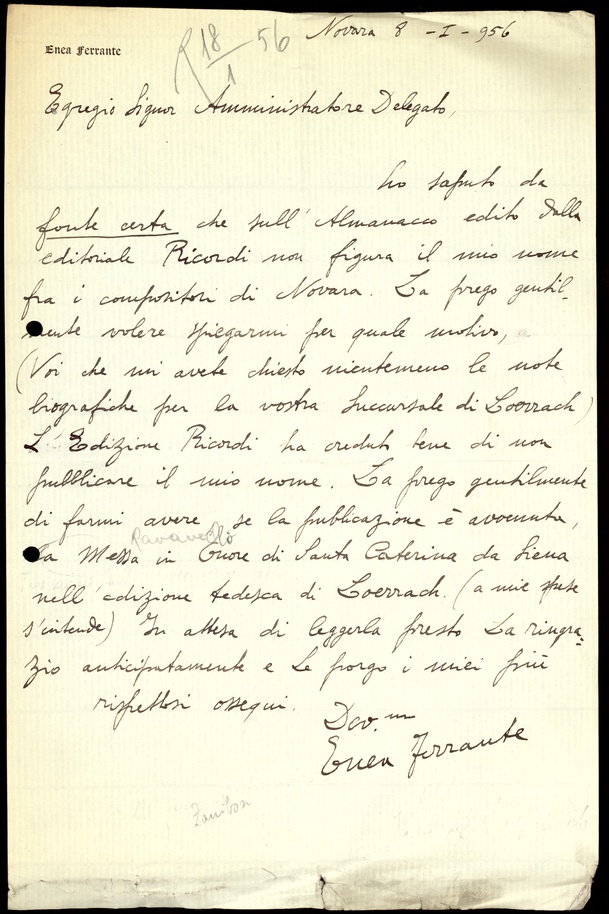 Novara 8 - I - 956
R 18/1 56
Enea Ferrante
Egregio Signor Amministratore Delegato,
ho saputo da
fonte certa che sull'Almanacco edito dalla
editoriale Ricordi non figura il mio nome
fra i compositori di Novara. La prego gentil-
mente volere spiegarmi per quale motivo,
(Voi che mi avete chiesto nientemeno le note
biografiche per la vostra Succursale di Loerrach)
L'Edizione Ricordi ha creduto bene di non
pubblicare il mio nome. La prego gentilmente
di farmi avere, se la pubblicazione è avvenuta,
Pavanello
la Messa in Onore di Santa Caterina da Siena
nell'edizione tedesca di Loerrach. (a mie spese
s'intende) In attesa di leggerla presto La ringra-
zio anticipatamente e Le porgo i miei più
rispettosi ossequi.
Dev.mo
Enea Ferrante
Zanibon